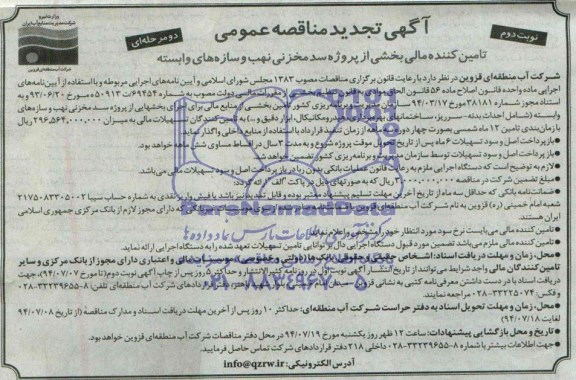 وزارت نیرو
شرکت مدیریت منابع آب ایران
شرکت آب منطقه‌ای قزوین
نوبت دوم
آگهی تجدید مناقصه عمومی
دو مرحله‌ای
تامین کننده مالی بخشی از پروژه سد مخزنی نهب و سازه‌های وابسته
شرکت آب منطقه‌ای قزوین در نظر دارد با رعایت قانون برگزاری مناقصات مصوب ۱۳۸۳ مجلس شورای اسلامی و آیین نامه‌های اجرایی مربوطه و با استفاده از آیین‌نامه‌های
اجرایی ماده واحده قانون اصلاح ماده ۵۶ قانون الحاق مقررات مالی دولت مصوب به شماره ۶۹۴۵۴/ت۵۰۹۱۳ه مورخ ۹۳/۰۶/۲۰ و
اسناد مجوز شماره ۳۸۱۸۱ مورخ ۹۴/۰۳/۱۷ سازمان مدیریت و برنامه ریزی کشور تامین بخشی از منابع مالی برای اجرای بخشهایی از پروژه سد مخزنی نهب و سازه‌های
وابسته (شامل احداث بدنه- سرریز، ساختمانهای هیدرومکانیکال، ابزار دقیق و...) به تامین کنندگان تسهیلات مالی به میزان ۲۹۶,۵۶۴,۰۰۰,۰۰۰ ریال
با زمان‌بندی تامین ۱۲ ماه شمسی بصورت چهار دوره سه ماهه از زمان تنفیذ قرارداد با استفاده از منابع داخلی واگذار نماید.
• بازپرداخت اصل و سود تسهیلات ۶ ماه پس از تاریخ تحویل موقت پروژه شروع و به مدت ۳ سال در اقساط مساوی شش ماهه خواهد بود.
• باز پرداخت اصل و سود تسهیلات توسط سازمان مدیریت و برنامه ریزی کشور تضمین خواهد شد.
• لازم به توضیح است که دستگاه اجرایی ملزم به رعایت قانون عملیات بانکی بدون ربا در باز پرداخت اصل و سود تسهیلات مالی می‌باشد.
• مبلغ تضمین شرکت در مناقصه ریال که به صورتهای ذیل در پاکت "الف" ارائه گردد:
- ضمانت‌نامه بانکی که حداقل سه ماه از تاریخ آخرین مهلت تسلیم پیشنهاد معتبر بوده و قابل تمدید نیز باشد یا فیش واریز نقدی به شماره حساب سیبا ۲۱۷۵۰۸۳۳۰۵۰۰۲
شعبه امام خمینی (ره) قزوین به نام شرکت آب منطقه‌ای قزوین که دارای مجوز لازم از بانک مرکزی جمهوری اسلامی
ایران هستند.
• تامین کننده مالی می‌بایست نرخ سود مورد انتظار خود را مشخص و اعلام نماید.
• تامین کننده مالی ملزم می‌باشد تضمین مورد قبول دستگاه اجرایی دال بر توانایی تامین تسهیلات تعهد شده را به دستگاه اجرایی ارائه نماید.
• محل، زمان و مهلت دریافت اسناد: اشخاص حقیقی و حقوقی، بانک ها (دولتی و خصوصی)، موسسات مالی و اعتباری دارای مجوز از بانک مرکزی و سایر
تامین کنندگان مالی واجد شرایط می‌توانند از تاریخ انتشار آگهی نوبت اول در روزنامه کثیر الانتشار و حداکثر ۵ روز پس از چاپ آگهی نوبت دوم (تا مورخ ۹۴/۰۷/۰۷)، جهت
دریافت اسناد با در دست داشتن معرفی‌نامه کتبی به نشانی قزوین قراردادهای شرکت آب منطقه‌ای تلفن: ۸-۳۳۲۳۹۶۵۵-۰۲۸
و فکس: ۳۳۲۲۵۰۷۴-۰۲۸ مراجعه نمایند.
• محل، زمان و مهلت تحویل اسناد به دفتر حراست شرکت آب منطقه‌ای: حداکثر ۱۰ روز پس از آخرین مهلت دریافت اسناد و مدارک مناقصه (از تاریخ ۹۴/۰۷/۰۸
لغایت ۹۴/۰۷/۱۸)
• تاریخ و محل بازگشایی پیشنهادات: ساعت ۱۲ ظهر روز یکشنبه مورخ ۹۴/۰۷/۱۹ در محل دفتر مناقصات شرکت آب منطقه‌ای قزوین خواهد بود.
• جهت اطلاعات بیشتر با شماره ۸-۳۳۲۳۹۶۵۵-۰۲۸ داخلی ۲۱۸ دفتر قراردادهای شرکت تماس حاصل فرمایید.
آدرس الکترونیکی: info@qzrw.ir
ParsNamadData
پایگاه اطلاعات پارس نماد داده‌ها
۰۲۱-۸۸۳۴۹۶۷۰-۵